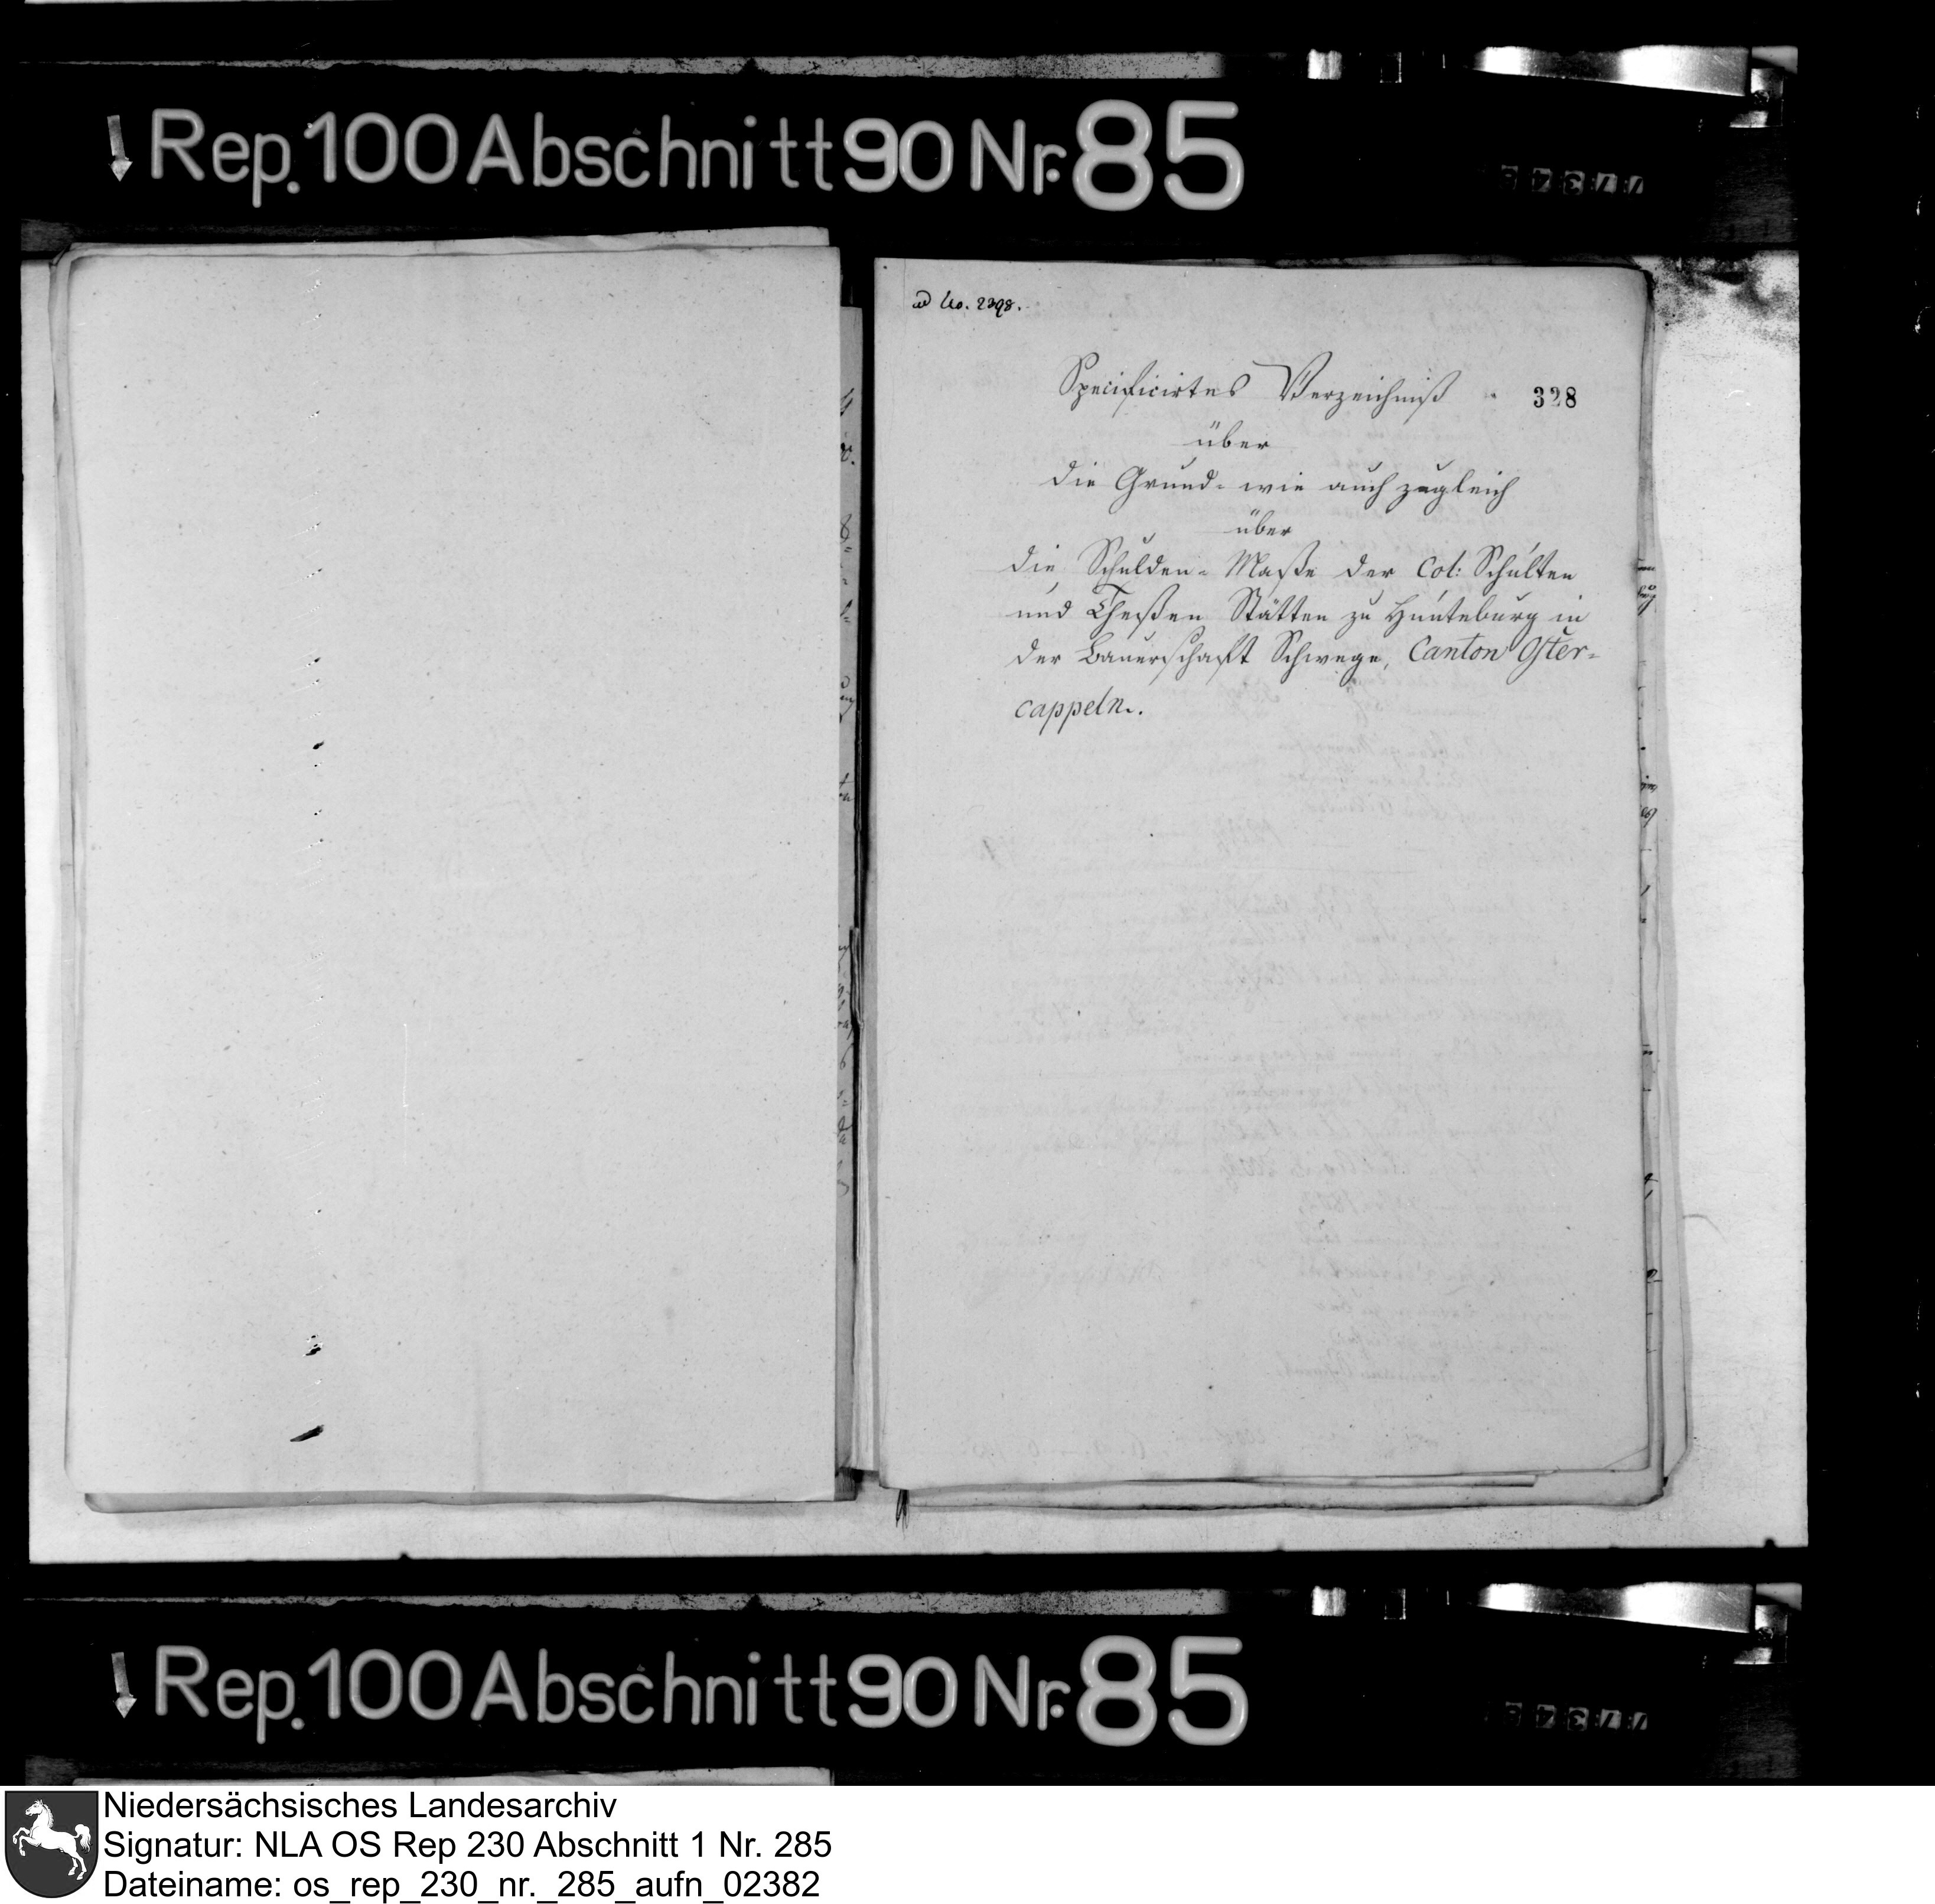 Rep. 100 Abschnitt 90 Nr. 85
ad No. 2398.
Specificirtes Verzeichniß
328
über
die Grund- wie auch zugleich
über
die Schulden-Maße der Col: Schulten
und Theßen Stätten zu Hunteburg in
der Bauerschaft Schwege, Canton Oster-
cappeln.
Rep. 100 Abschnitt 90 Nr. 85
Niedersächsisches Landesarchiv
Signatur: NLA OS Rep 230 Abschnitt 1 Nr. 285
Dateiname: os_rep_230_nr._285_aufn_02382